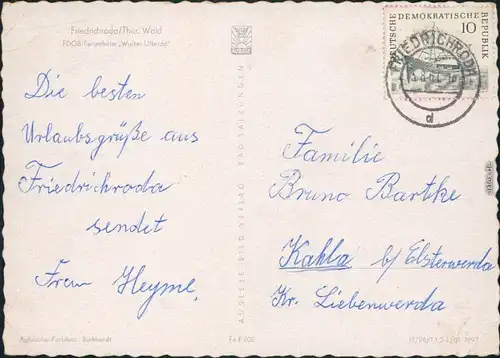 Friedrichroda/Thür. Wald
FDGB-Ferienheim „Walter Ulbricht"
Die besten
Urlaubsgrüße aus
Friedrichroda
sendet
Frau Heyme,
DEUTSCHE DEMOKRATISCHE REPUBLIK
10
FRIEDRICHRODA
d
Familie
Bruno Bartke
Kahla b/ Elsterwerda
Kr. Liebenwerda
AUSLESE-BILD-VERLAG BAD SALZUNGEN
Burkhardt